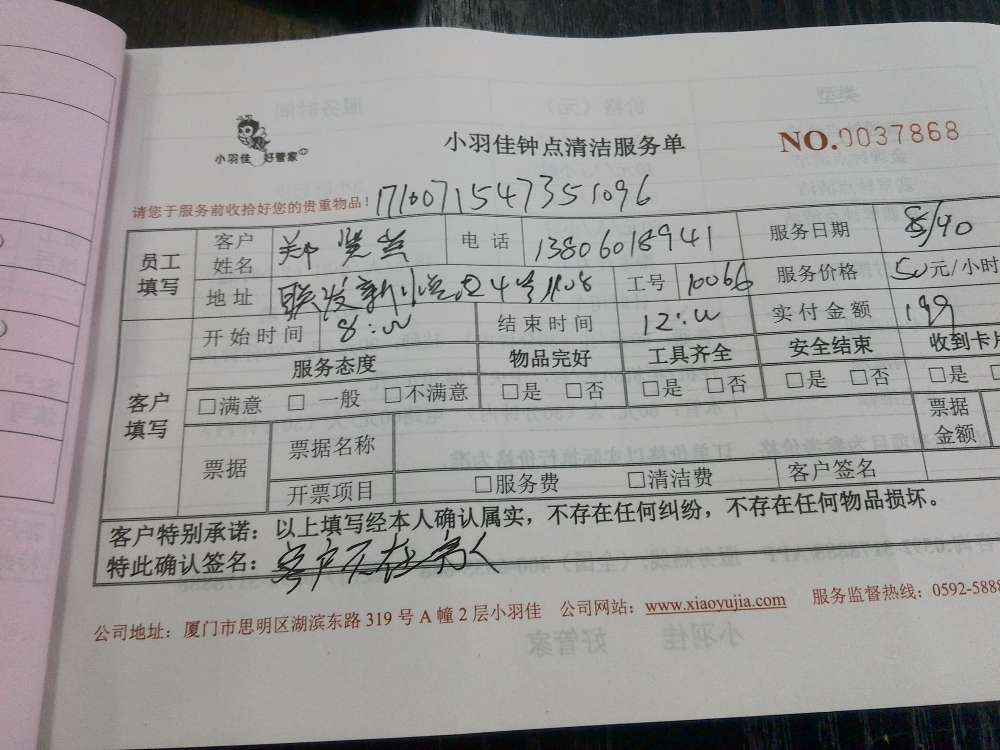 小羽佳 好管家
小羽佳钟点清洁服务单
NO.0037868
请您于服务前收拾好您的贵重物品！ 1710071547351096
员工填写 客户姓名 郑 电话 13806018941 服务日期
地址 联发新 工号 10066 服务价格 50元/小时
客户填写 开始时间 8: 结束时间 12: 实付金额 199
服务态度 物品完好 工具齐全 安全结束 收到卡片
□满意 □一般 □不满意 □是 □否 □是 □否 □是 □否 □是
票据 票据名称 票据金额
开票项目 □服务费 □清洁费 客户签名
客户特别承诺：以上填写经本人确认属实，不存在任何纠纷，不存在任何物品损坏。
特此确认签名：客户不在
公司地址：厦门市思明区湖滨东路 319 号 A 幢 2 层小羽佳 公司网站：www.xiaoyujia.com 服务监督热线：0592-5888